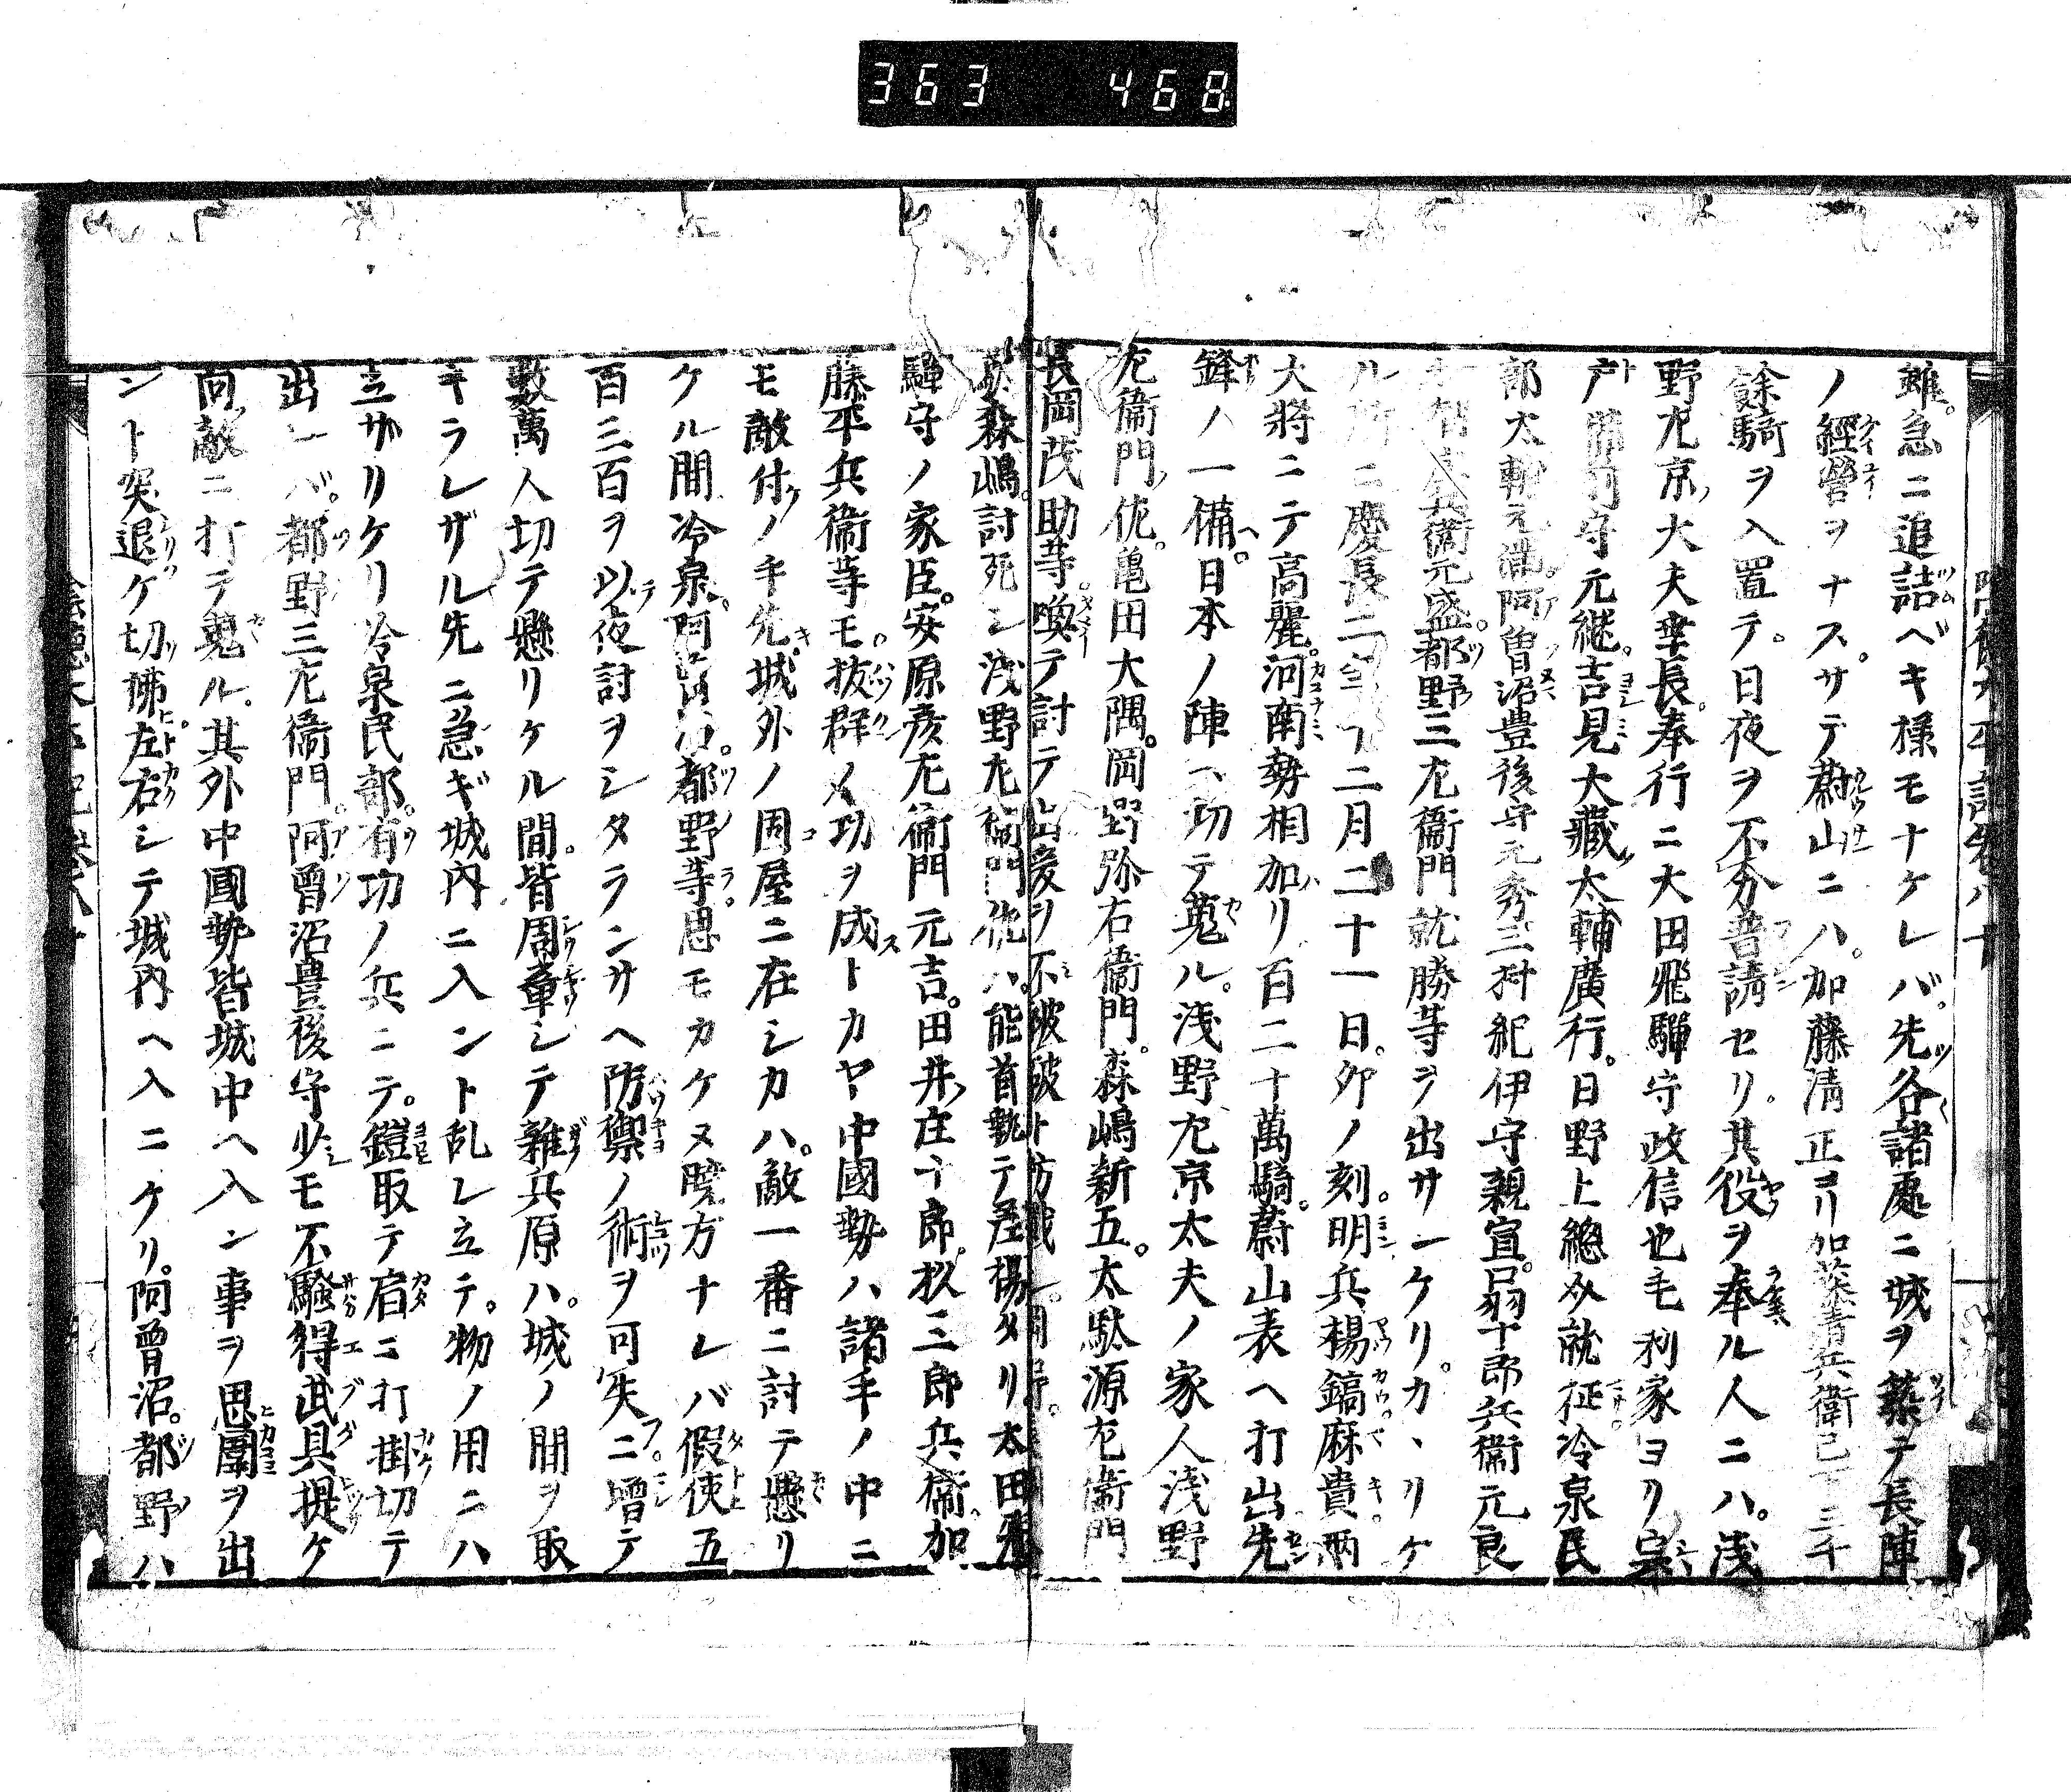 363 468
雖。急ニ追詰ベキ様モナケレバ。先各諸處ニ城ヲ築テ長陣
ノ經營ヲナス。サテ蔚山ニハ。加藤清正ヨリ加 清兵衛 三千
餘騎ヲ入置テ。日夜ヲ不分普請セリ。其役ヲ奉ル人ニハ。浅
野左京大夫幸長。奉行ニ大田飛騨守政信也毛利家ヨリ宗
戸 守元継。吉見大藏太輔廣行。日野上總 就 冷泉民
部太輔元満。阿曽沼豊後守元秀三 紀伊守親宣。 十郎兵衛元良
兵衛元盛。都野三左衛門就勝等ヲ出サレケリ。カヽリケ
ル所ニ慶長二年 二月二十一日。卯ノ刻。明兵楊鎬麻貴両
大將ニテ高麗。河南勢相加リ百二十萬騎。蔚山表ヘ打出先
鋒ノ一備。日本ノ陣ヘ切テ蒐ル。浅野左京太夫ノ家人浅野
左衛門佐。亀田大隅。岡野弥右衛門。森嶋新五。太駄源左衛門
長岡茂助等。喚テ討テ出爰ヲ不破破ト防戦
森嶋。討死シ浅野左衛門佐ハ。能首執テ差揚タリ。太田飛
騨守ノ家臣。安原彦左衛門元吉。田井庄十郎。杦三郎兵衛。加
藤平兵衛等モ。抜群メ功ヲ成トカヤ中國勢ハ諸手ノ中ニ
モ敵付ノ手先。城外ノ固屋ニ在シカハ。敵一番ニ討テ懸リ
ケル間冷泉。阿曽沼。都野等。思モカケヌ暁方ナレバ假使五
百三百ヲ以夜討ヲシタランサヘ防禦ノ術ヲ可失ニ増テ
數萬人切テ懸リケル間。皆周章シテ雑兵原ハ。城ノ間ヲ取
キラレザル先ニ急ギ城内ニ入ント乱レ立テ。物ノ用ニハ
立サリケリ冷泉民部。有功ノ兵ニテ。鎧取テ肩ニ打掛切テ
出レバ。都野三左衛門。阿曽沼豊後守少モ不騒得武具提ケ
向敵ニ打テ蒐ル。其外中國勢皆城中ヘ入ン事ヲ思圍ヲ出
ント突退ケ切拂左右シテ城内ヘ入ニケリ。阿曽沼。都野ハ